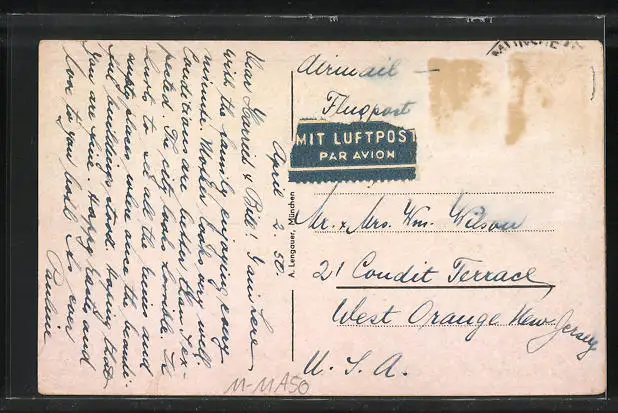 April 2. 50.
Dear Harriet & Bill! I am here
with the family enjoying every
minute. Mother looks very well
Conditions are better than ex-
pected. The city looks horrible. It
hurts to see all the ruins and
empty places where once the beauti-
ful buildings stood. Hoping that
you are fine. Happy Easter and
love to you both as ever
Pauline
A. Lengauer, München
Airmail —
Flugpost
MIT LUFTPOST
PAR AVION
Mr. & Mrs. Wm. Wilson
21 Condit Terrace
West Orange New-Jersey
U. S. A.
M-MA50